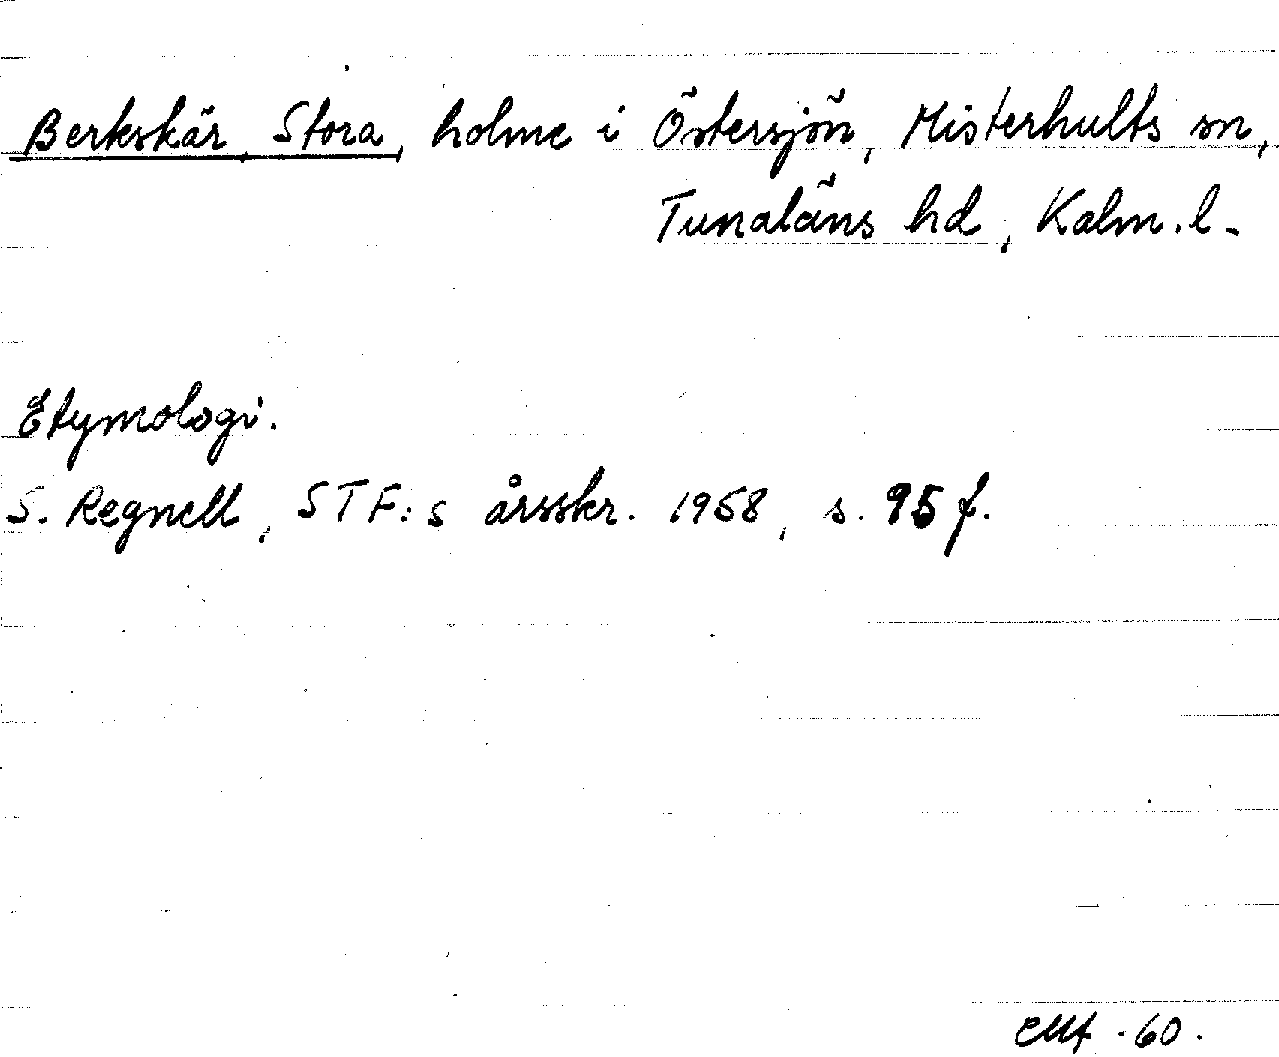 Berkskär, Stora, holme i Östersjön, Misterhults sn,
Tunaläns hd, Kalm. l.
Etymologi.
S. Regnell, STF:s årsskr. 1958, s. 95 f.
-60.